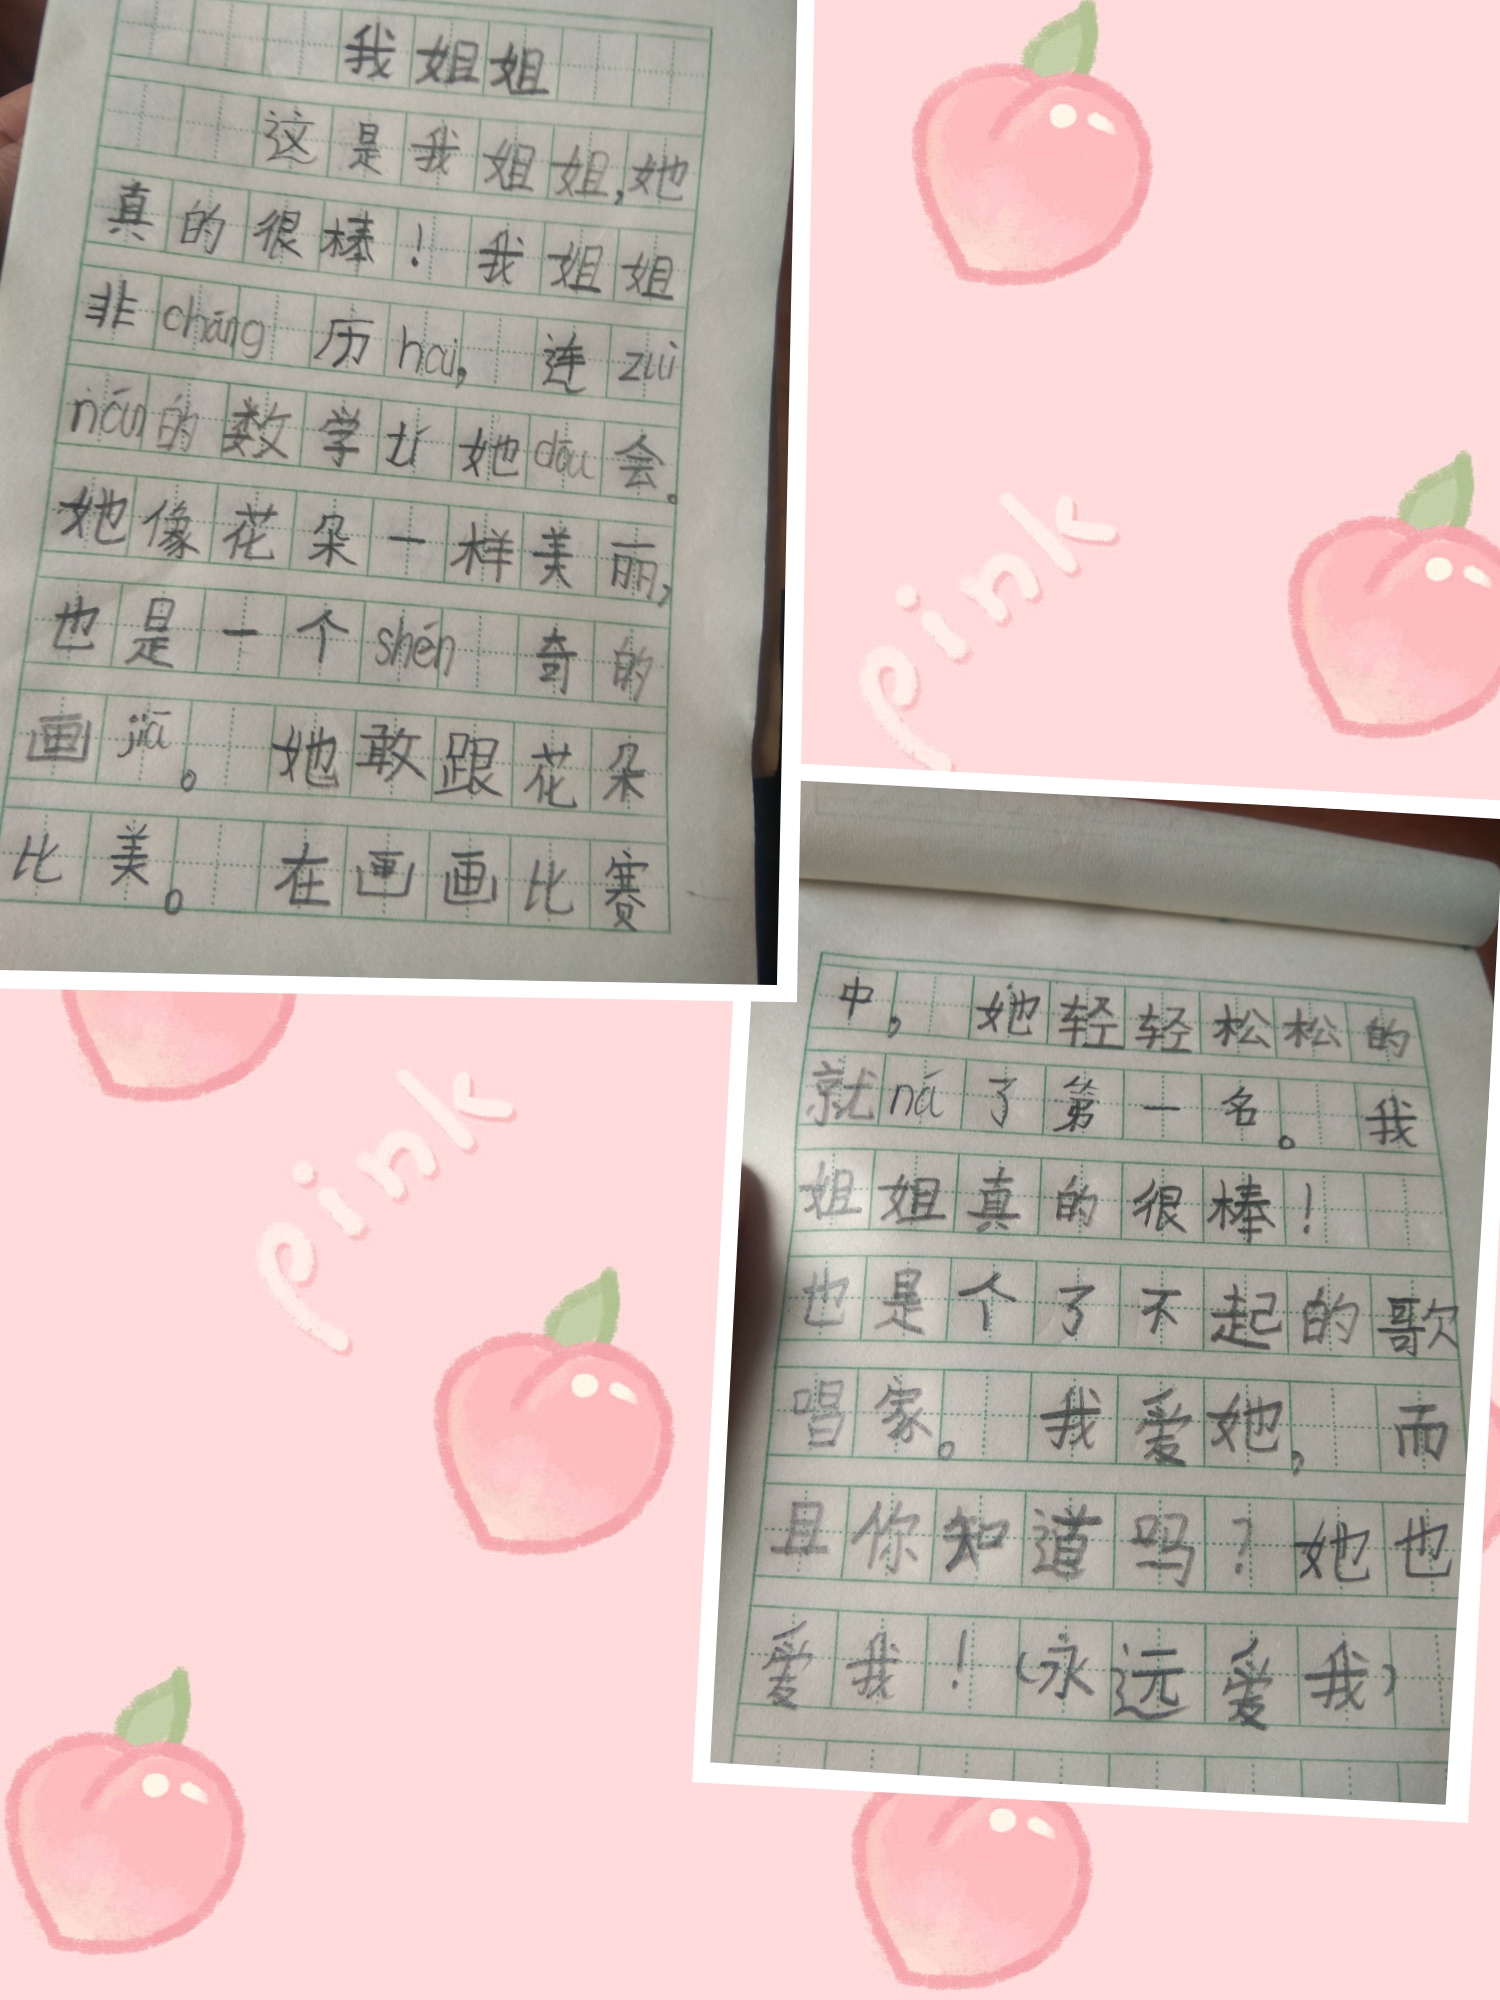 我姐姐
这是我姐姐,她
真的很棒!我姐姐
非cháng历hai,连zuì
nán的数学tí她dōu会。
她像花朵一样美丽,
也是一个shén奇的
画jiā。她敢跟花朵
比美。在画画比赛
pink
中,她轻轻松松的
就ná了第一名。我
姐姐真的很棒!
也是个了不起的歌
唱家。我爱她,而
且你知道吗?她也
爱我!(永远爱我)
pink